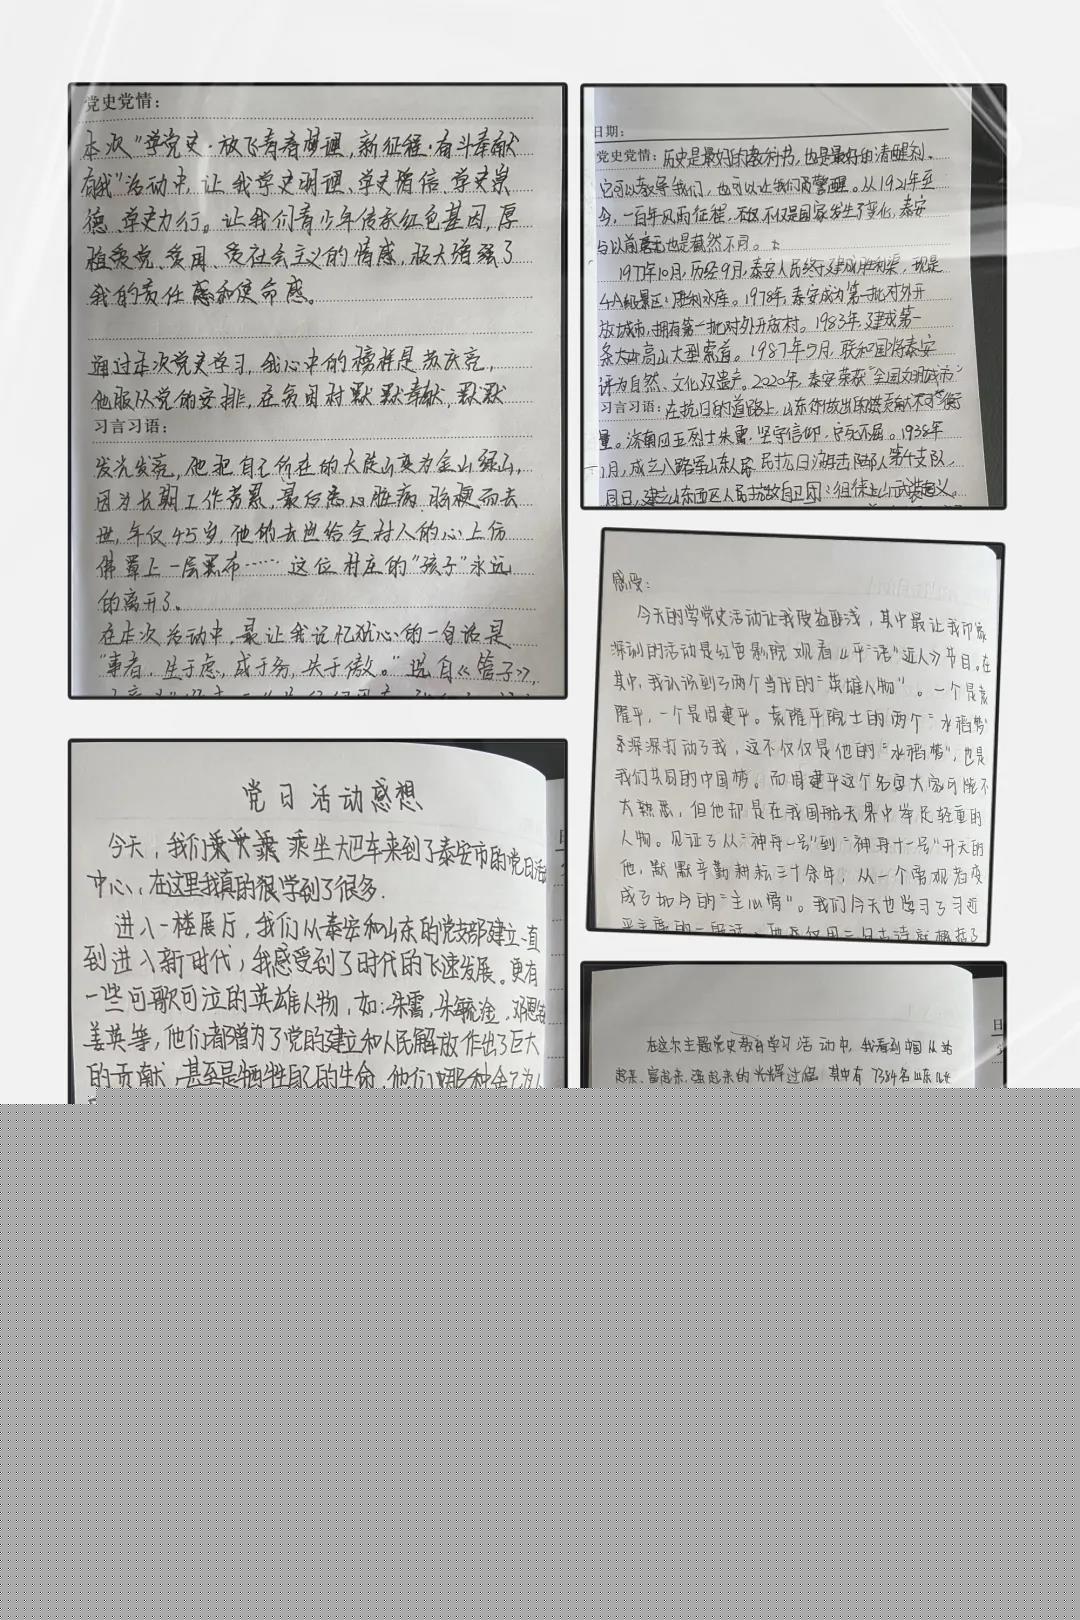 党史党情：
本次“学党史·放飞青春梦理，新征程·奋斗奉献
有我”活动中，让我学史明理、学史增信、学史崇
德、学史力行。让我们青少年传承红色基因，厚
植爱党、爱国、爱社会主义的情感，极大增强了
我的责任感和使命感。
通过本次党史学习，我心中的榜样是苏庆亮，
他服从党的安排，在贫困村默默奉献，默默
习言习语：
发光发亮，他把自己所在的大陡山变为金山绿山，
因为长期工作劳累，最后患心脏病、脑梗而去
世，年仅45岁，他的去世给全村人的心上仿
佛罩上一层黑布……这位村庄的“孩子”永远
的离开了。
在本次活动中，最让我记忆犹心的一句话是
“事者，生于虑，成于务，失于傲。”选自《管子》，
日期：
党史党情：历史是最好的教科书，也是最好的清醒剂。
它可以教导我们，也可以让我们警醒。从1921年至
今，一百年风雨征程，不仅国家发生了变化，泰安
与以前也是截然不同。
1977年10月，历经9月，泰安人民终于建成胜利渠，现是
4A级景区：胜利水库。1978年，泰安成为第一批对外开
放城市，拥有第一批对外开放村。1983年，建成第一
条大高山大型索道。1987年5月，联和国将泰安
评为自然、文化双遗产。2020年，泰安荣获“全国文明城市”
习言习语：在抗日的道路上，山东所做出的贡献不可衡
量。济南四五烈士朱霄，坚守信仰，宁死不屈。1938年
1月，成立八路军山东人民抗日游击队第四支队，
月日，建立山东西区人民抗敌自卫团；徂徕山武装起义。
感受：
今天的学党史活动让我受益匪浅，其中最让我印象
深刻的活动是红色影院观看《平“语”近人》节目。在
其中，我认识到了两个当代的“英雄人物”。一个是袁
隆平，一个是周建平。袁隆平院士的两个“水稻梦”
深深打动了我，这不仅仅是他的“水稻梦”，也是
我们共同的中国梦。而周建平这个名字大家可能不
大熟悉，但他却是在我国航天界中举足轻重的
人物。见证了从“神舟一号”到“神舟十一号”开天的
他，默默辛勤耕耘三十余年，从一个旁观者变
成了如今的“主心骨”。我们今天也学习了习近
党日活动感想
今天，我们乘坐大巴车来到了泰安市的党日活
中心，在这里我真的很学到了很多.
进入一楼展厅，我们从泰安和山东的党支部建立一直
到进入新时代，我感受到了时代的飞速发展。更有
一些可歌可泣的英雄人物，如：朱霄，朱毓淦，邓恩铭
姜英等，他们都增为了党的建立和人民解放作出了巨大
的贡献，甚至是牺牲自己的生命，他们
在这次主题党史教育学习活动中，我看到中国从站
起来、富起来、强起来的光辉过程，其中有7384名山东